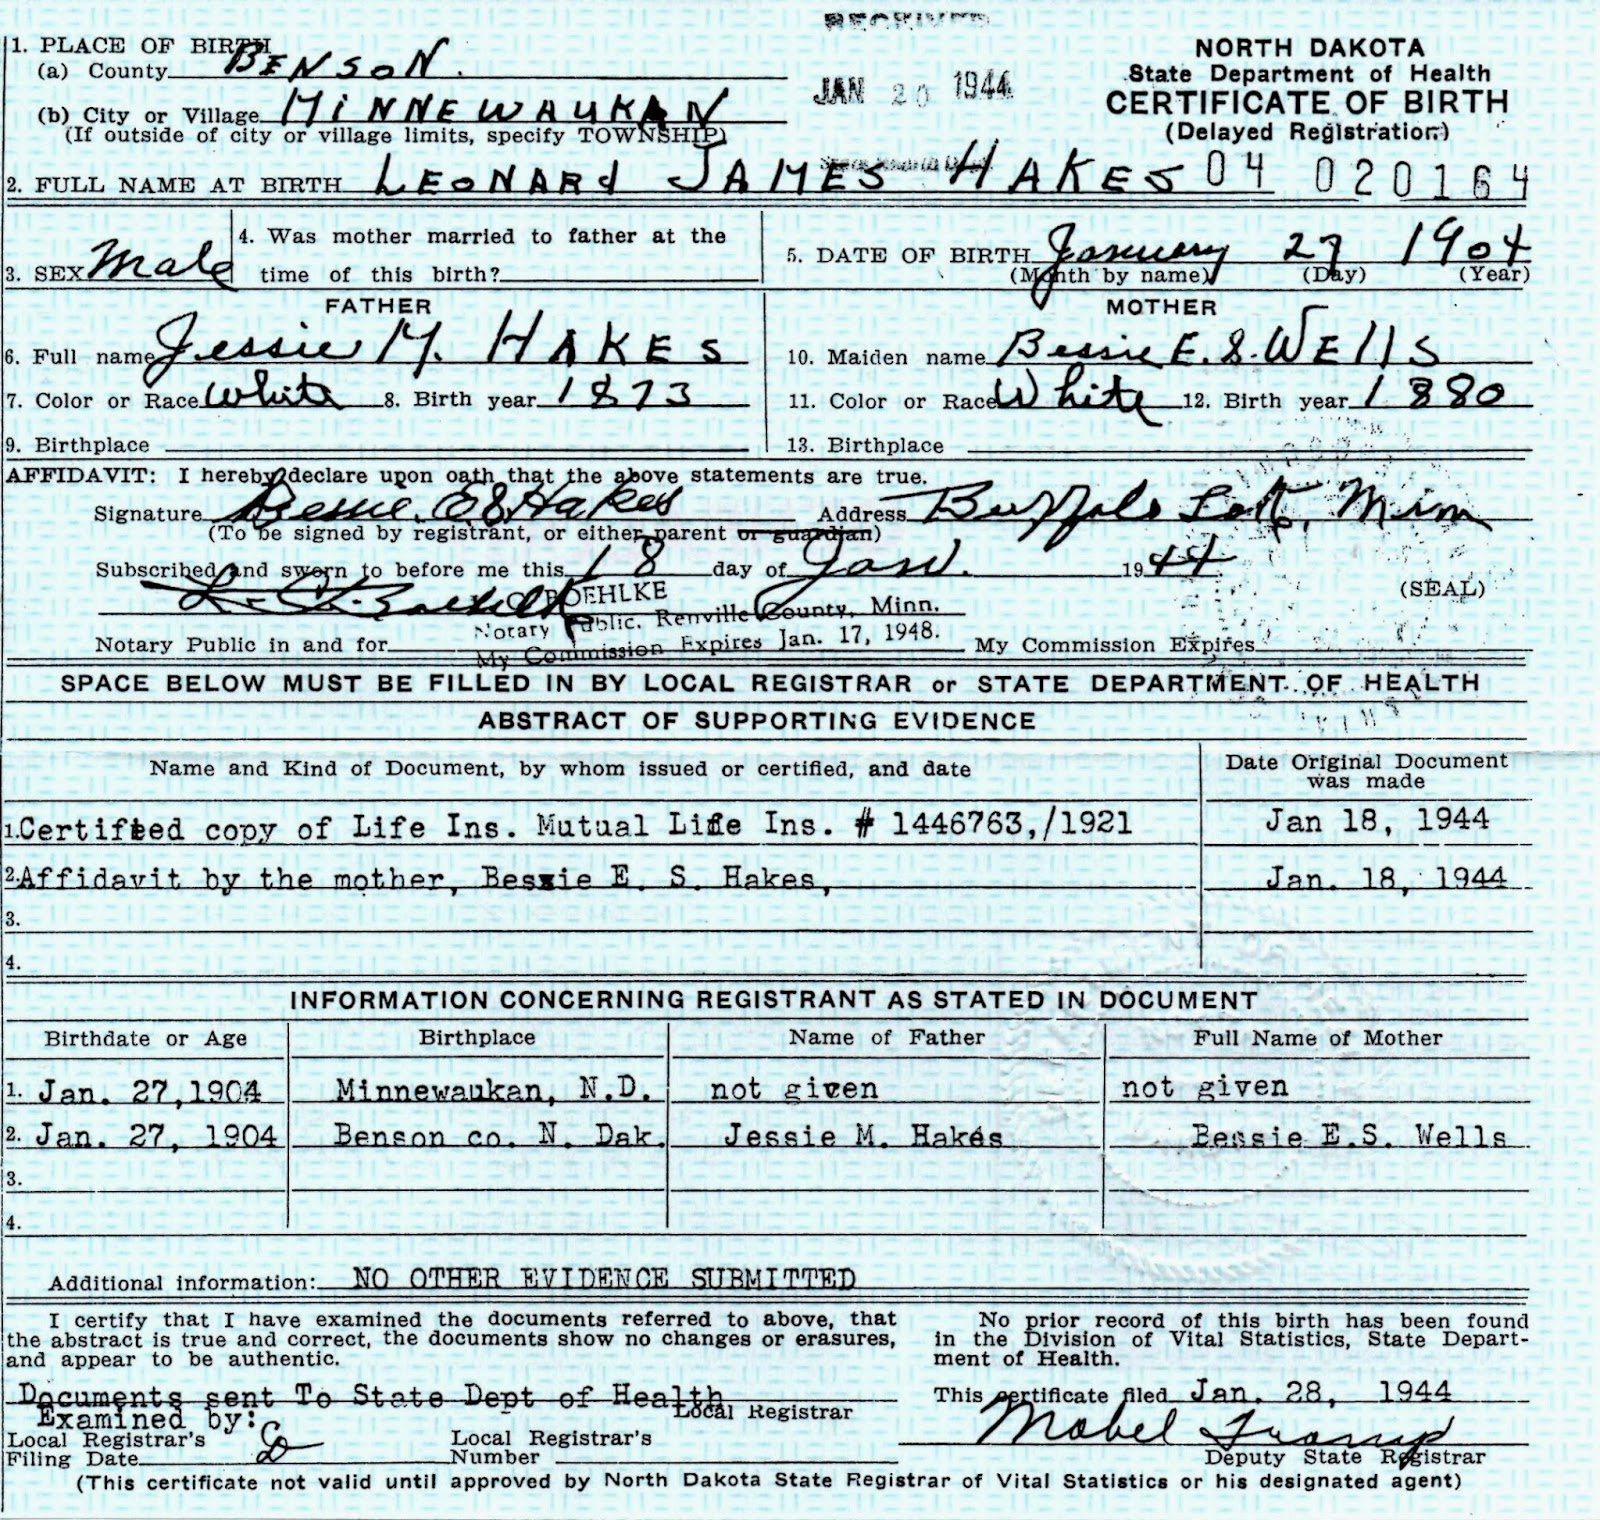 RECEIVED
JAN 20 1944
NORTH DAKOTA
State Department of Health
CERTIFICATE OF BIRTH
(Delayed Registration)
1. PLACE OF BIRTH
(a) County BENSON.
(b) City or Village MINNEWAUKAN
(If outside of city or village limits, specify TOWNSHIP)
2. FULL NAME AT BIRTH LEONARd JAMES HAKES 04 020164
3. SEX Male
4. Was mother married to father at the
time of this birth?
5. DATE OF BIRTH January 27 1904
(Month by name) (Day) (Year)
FATHER
MOTHER
6. Full name Jessie M. HAKES
10. Maiden name Bessie E. S. WEllS
7. Color or Race White 8. Birth year 1873
11. Color or Race White 12. Birth year 1880
9. Birthplace
13. Birthplace
AFFIDAVIT: I hereby declare upon oath that the above statements are true.
Signature Bessie E S Hakes Address Buffalo Minn
(To be signed by registrant, or either parent or guardian)
Subscribed and sworn to before me this 18 day of Jan. 1944
BOEHLKE
(SEAL)
Notary Public, Renville County, Minn.
My Commission Expires Jan. 17, 1948.
Notary Public in and for My Commission Expires
SPACE BELOW MUST BE FILLED IN BY LOCAL REGISTRAR or STATE DEPARTMENT OF HEALTH
ABSTRACT OF SUPPORTING EVIDENCE
Name and Kind of Document, by whom issued or certified, and date
Date Original Document
was made
1. Certified copy of Life Ins. Mutual Life Ins. # 1446763,/1921 Jan 18, 1944
2. Affidavit by the mother, Bessie E. S. Hakes, Jan. 18, 1944
3.
4.
INFORMATION CONCERNING REGISTRANT AS STATED IN DOCUMENT
Birthdate or Age Birthplace Name of Father Full Name of Mother
1. Jan. 27,1904 Minnewaukan, N.D. not given not given
2. Jan. 27, 1904 Benson co. N. Dak. Jessie M. Hakes Bessie E.S. Wells
3.
4.
Additional information: NO OTHER EVIDENCE SUBMITTED
I certify that I have examined the documents referred to above, that
the abstract is true and correct, the documents show no changes or erasures,
and appear to be authentic.
No prior record of this birth has been found
in the Division of Vital Statistics, State Depart-
ment of Health.
Documents sent To State Dept of Health
Local Registrar
Examined by:
Local Registrar's
Filing Date
Local Registrar's
Number
This certificate filed Jan. 28, 1944
Mabel
Deputy State Registrar
(This certificate not valid until approved by North Dakota State Registrar of Vital Statistics or his designated agent)